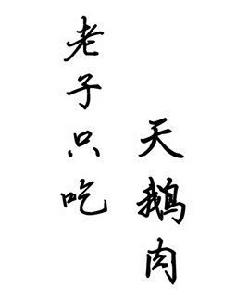 老子只吃
天鹅肉